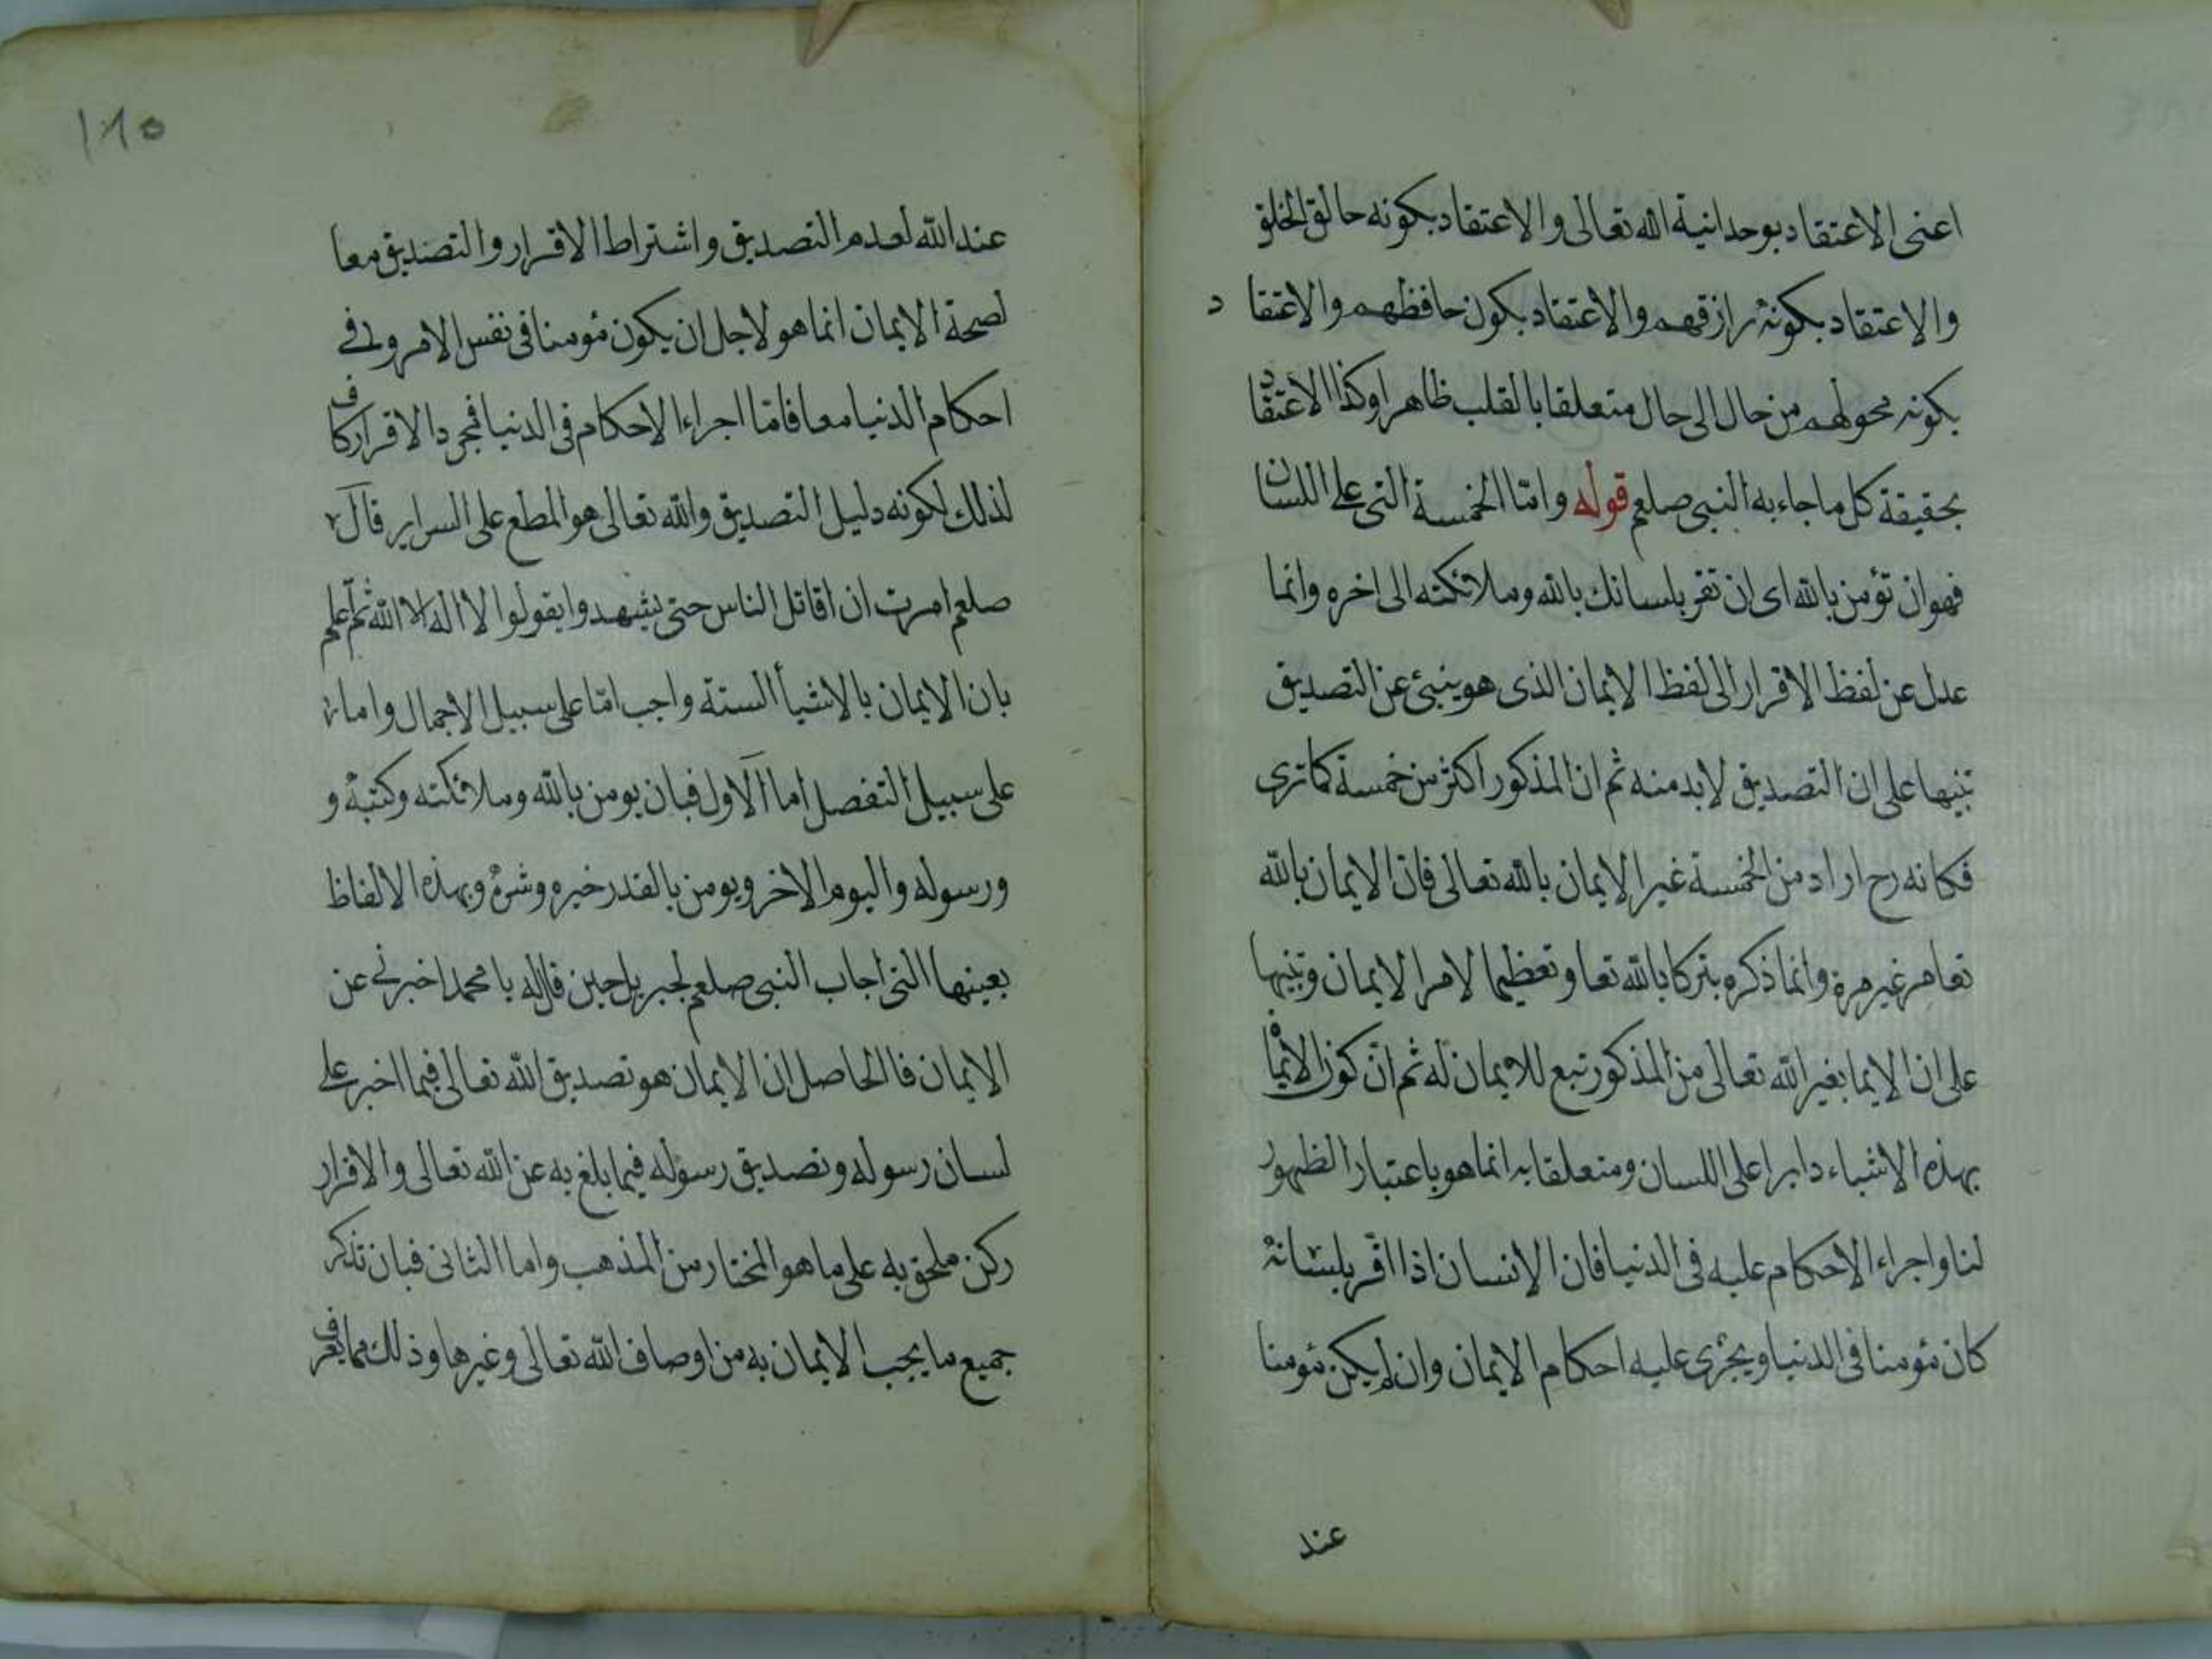 اعنى الاعتقاد بوحدانية الله تعالى والاعتقاد بكونه خالق الخلق
والاعتقاد بكونه رازقهم والاعتقاد بكون حافظهم والاعتقا د
بكونه محولهم من حال الى حال متعلقا بالقلب ظاهرا وكذا الاعتقاد
بحقيقة كل ما جاء به النبى صلعم قوله واما الخمسة التى على اللسان
فهو ان تؤمن بالله اى ان تقر بلسانك بالله وملائكته الى اخره وانما
عدل عن لفظ الاقرار الى لفظ الايمان الذى هو ينبئ عن التصديق
تنبيها على ان التصديق لا بد منه ثم ان المذكور اكثر من خمسة كما ترى
فكانه رح اراد من الخمسة غير الايمان بالله تعالى فان الايمان بالله
تعا مر غير مرة وانما ذكره تبركا بالله تعا وتعظيما لامر الايمان وتنبيها
على ان الايما بغير الله تعالى من المذكور تبع للايمان له ثم ان كون الايمان
بهذه الاشياء دايرا على اللسان ومتعلقا به انما هو باعتبار الظهور
لنا واجراء الاحكام عليه فى الدنيا فان الانسان اذا اقر بلسانه
كان مؤمنا فى الدنيا ويجرى عليه احكام الايمان وان لم يكن مؤمنا
عند
١٨٥
عند الله لعدم التصديق واشتراط الاقرار والتصديق معا
لصحة الايمان انما هو لاجل ان يكون مؤمنا فى نفس الامر وفى
احكام الدنيا معا فاما اجراء الاحكام فى الدنيا فمجرد الاقرار كاف
لذلك لكونه دليل التصديق والله تعالى هو المطع على السراير قال
صلعم امرت ان اقاتل الناس حتى يشهدوا يقولوا لا اله الا الله ثم اعلم
بان الايمان بالاشيأ الستة واجب اما على سبيل الاجمال واما
على سبيل التفصل اما الاول فبان يومن بالله وملائكته وكتبه و
ورسوله واليوم الاخر ويومن بالقدر خيره وشره وبهذه الالفاظ
بعينها التى اجاب النبى صلعم لجبريل حين قال له يا محمد اخبرنى عن
الايمان فالحاصل ان الايمان هو تصديق الله تعالى فيما اخبر على
لسان رسوله وتصديق رسوله فيما بلغ به عن الله تعالى والاقرار
ركن ملحق به على ما هو المختار من المذهب واما الثانى فبان تذكر
جميع ما يجب الايمان به من اوصاف الله تعالى وغيرها وذلك مما يعرف